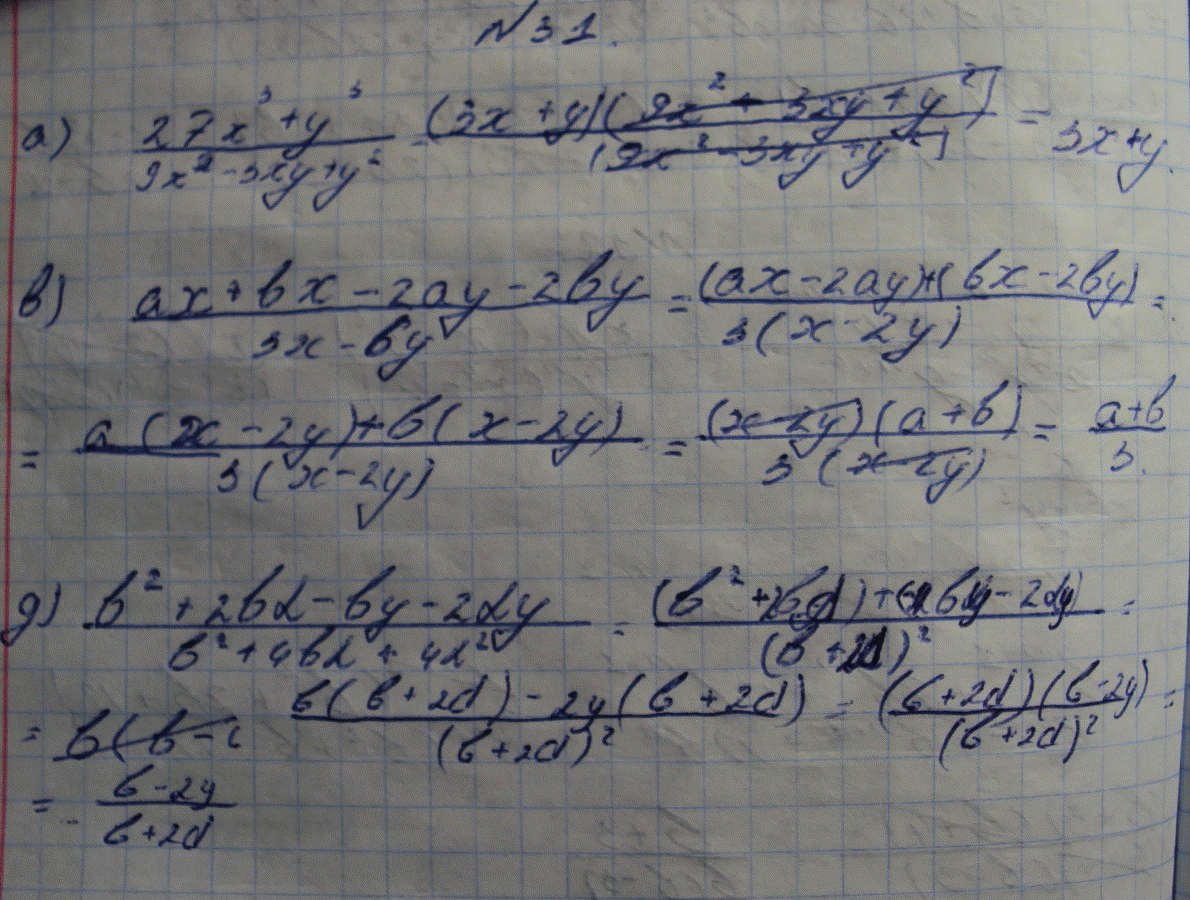 №31.
а) (27x³+y³)/(9x²-3xy+y²) = ((3x+y)(9x²+3xy+y²))/((9x²-3xy+y²)) = 3x+y.
в) (ax+bx-2ay-2by)/(3x-6y) = ((ax-2ay)+(bx-2by))/(3(x-2y)) =
= (a(x-2y)+b(x-2y))/(3(x-2y)) = ((x-2y)(a+b))/(3(x-2y)) = (a+b)/3.
д) (b²+2bd-by-2dy)/(b²+4bd+4d²) = ((b²+2bd)+(by-2dy))/((b+2d)²) =
= b(b-c (b(b+2d)-2y(b+2d))/((b+2d)²) = ((b+2d)(b-2y))/((b+2d)²) =
= (b-2y)/(b+2d)